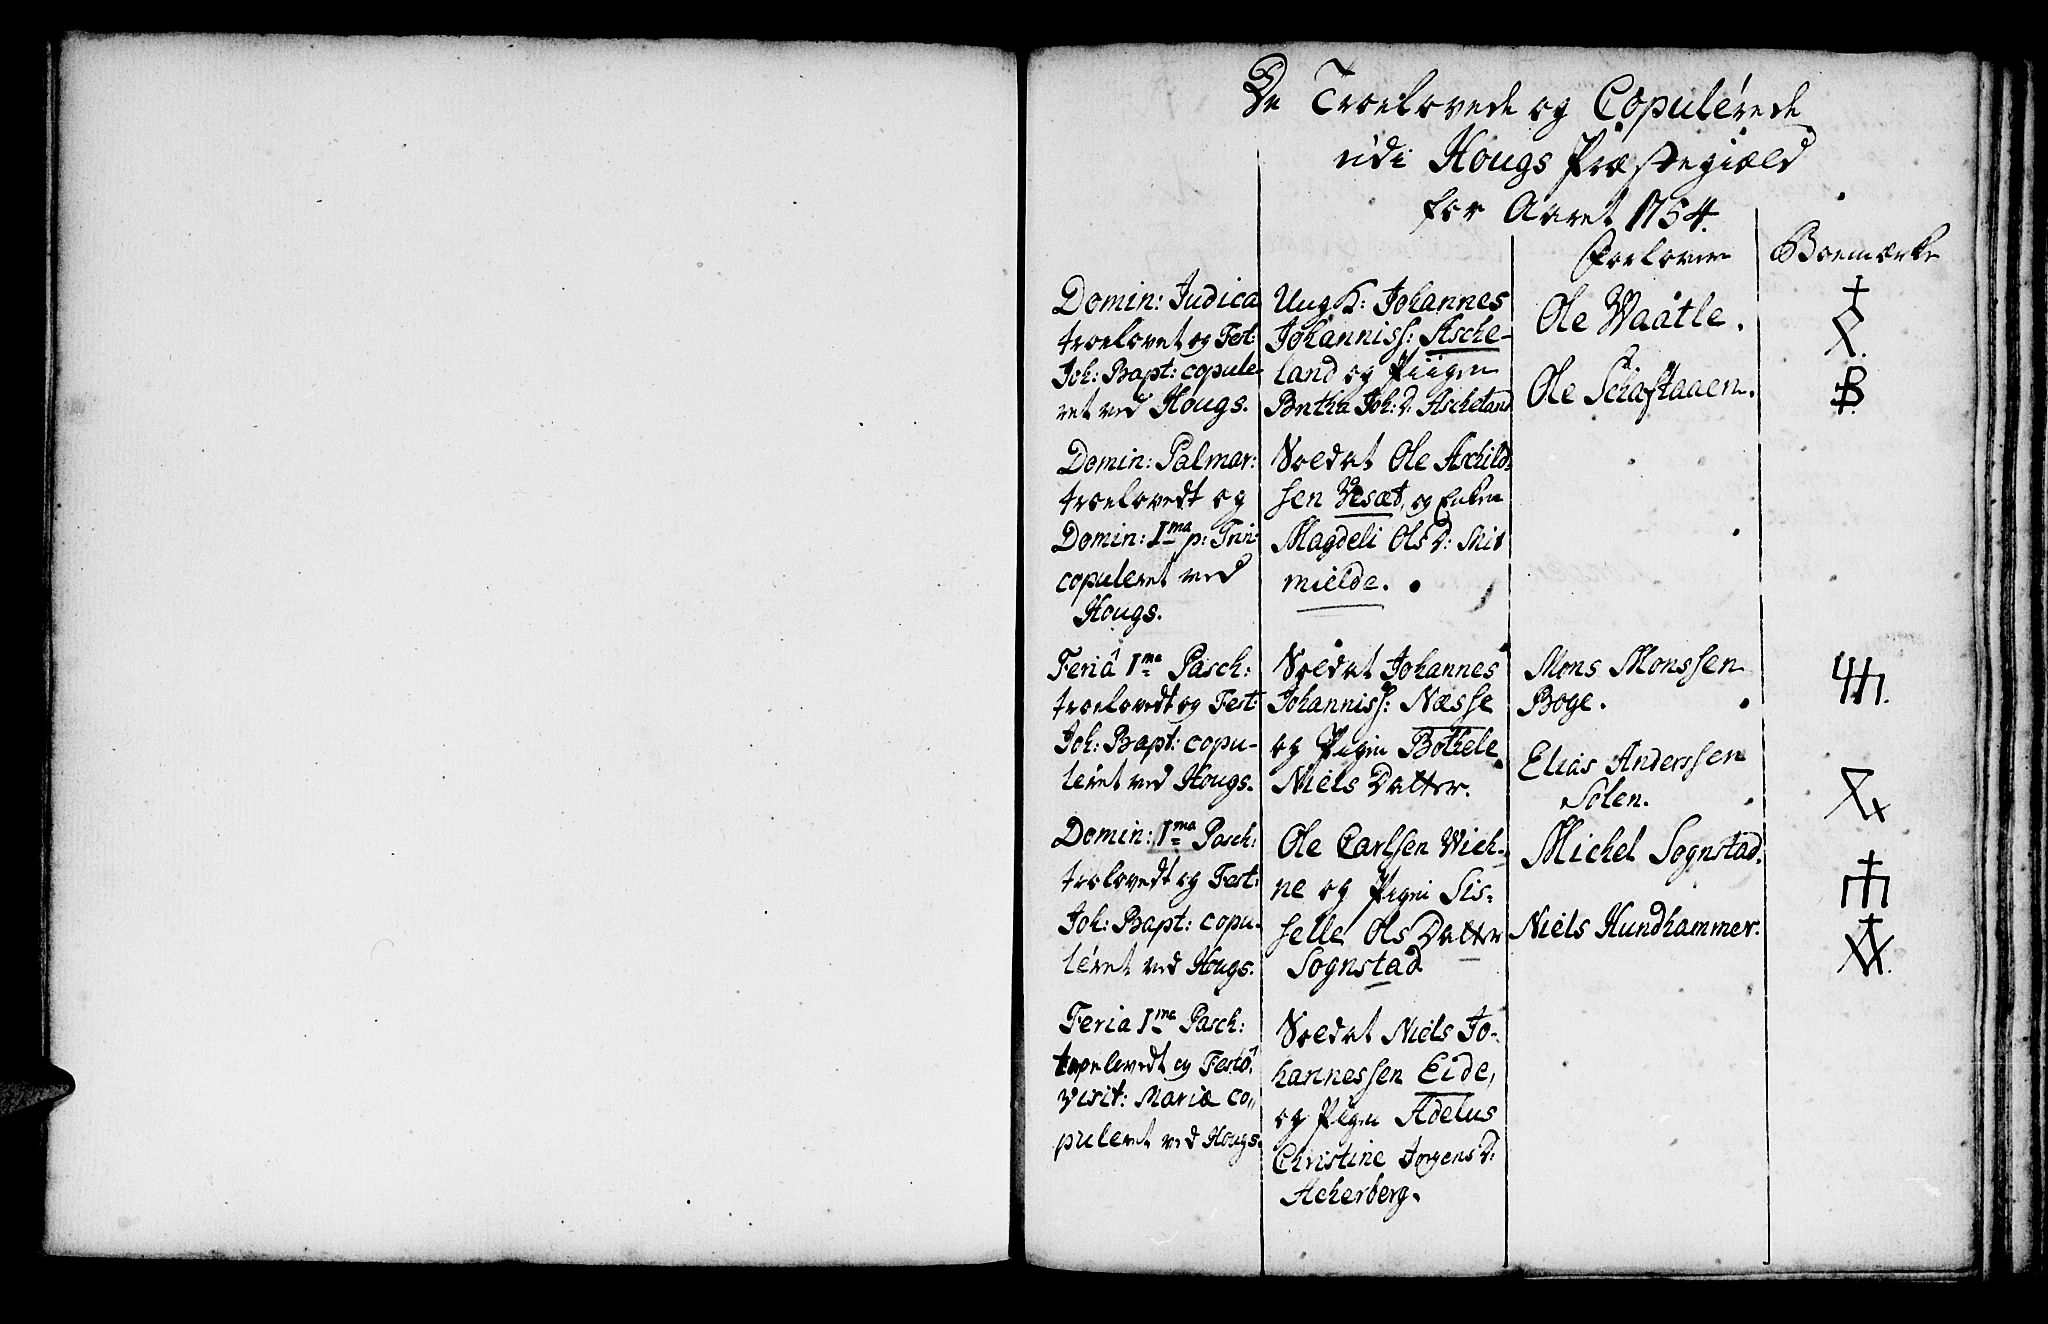 De Troelovede og Copulérede
udi Hougs Præstegiæld
for Aaret 1754.
Forlovere
Boemærke
Domin: Judica
troelovet og Fest:
Joh: Bapt: copule-
ret ved Hougs.
Ung K: Johannes
Johanniss: Asche-
land og Piigen
Joh: D: Ascheland
Ole Waatle.
Ole Schaftaaen.
Domin: Palmar:
troelovedt og
Domin: I ma p: Trin:
copuleret ved
Hougs.
Soldat Ole Aschild-
sen Vesæt, og Enken
Magdeli Ols D:
mielde.
Feriâ 1 ma Pasch:
troelovedt og Fest:
Joh: Bapt: copu-
léret ved Hougs.
Soldat Johannes
Johanniss: Næsse
og Pigen Bothele
Niels Datter.
Mons Monssen
Boge.
Elias Anderssen
Solen.
Domin: 1 ma Pasch:
trolovedt og Fest:
Joh: Bapt: copu-
léret ved Hougs.
Ole Carlsen Wich-
ne og Pigen Sis-
selle Ols Datter
Sognstad
Michel Sognstad.
Niels Hundhammer.
Feria 1 ma Pasch:
troelovedt og Festô
Visit: Mariæ co-
puleret ved Hougs.
Soldat Niels Jo-
hannessen Eide,
og Pigen Adelus
Christine Jørgens D:
Acherberg.